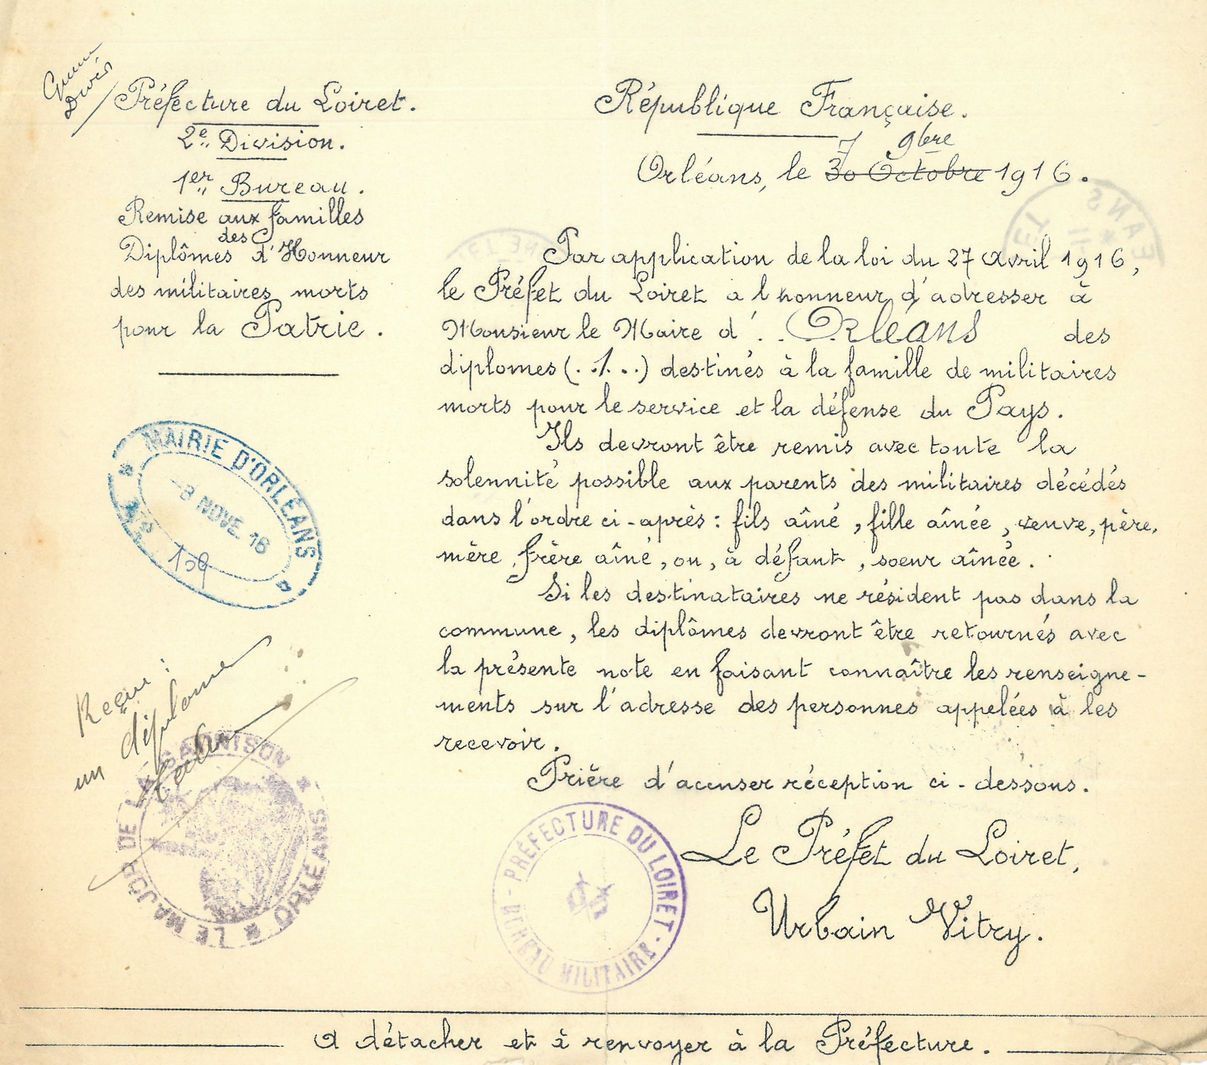 Guerre
Divers
Préfecture du Loiret.
2e Division.
1er Bureau.
Remise aux familles
des
Diplômes d'Honneur
des militaires morts
pour la Patrie.
République Française.
7 9bre
Orléans, le 30 Octobre 1916.
Par application de la loi du 27 avril 1916,
le Préfet du Loiret a l'honneur d'adresser à
Monsieur le Maire d'.. Orléans des
diplomes (.1..) destinés à la famille de militaires
morts pour le service et la défense du Pays.
Ils devront être remis avec toute la
solennité possible aux parents des militaires décédés
dans l'ordre ci-après : fils aîné, fille aînée, veuve, père,
mère, frère aîné, ou, à défaut, soeur aînée.
Si les destinataires ne résident pas dans la
commune, les diplômes devront être retournés avec
la présente note en faisant connaître les renseigne-
ments sur l'adresse des personnes appelées à les
recevoir.
Prière d'accuser réception ci-dessous.
Le Préfet du Loiret,
Urbain Vitry.
MAIRIE D'ORLÉANS
NOVE 16
No
159
Reçu :
un diplome
LE MAJOR DE LA GARNISON
ORLÉANS
PRÉFECTURE DU LOIRET
BUREAU MILITAIRE
A détacher et à renvoyer à la Préfecture.